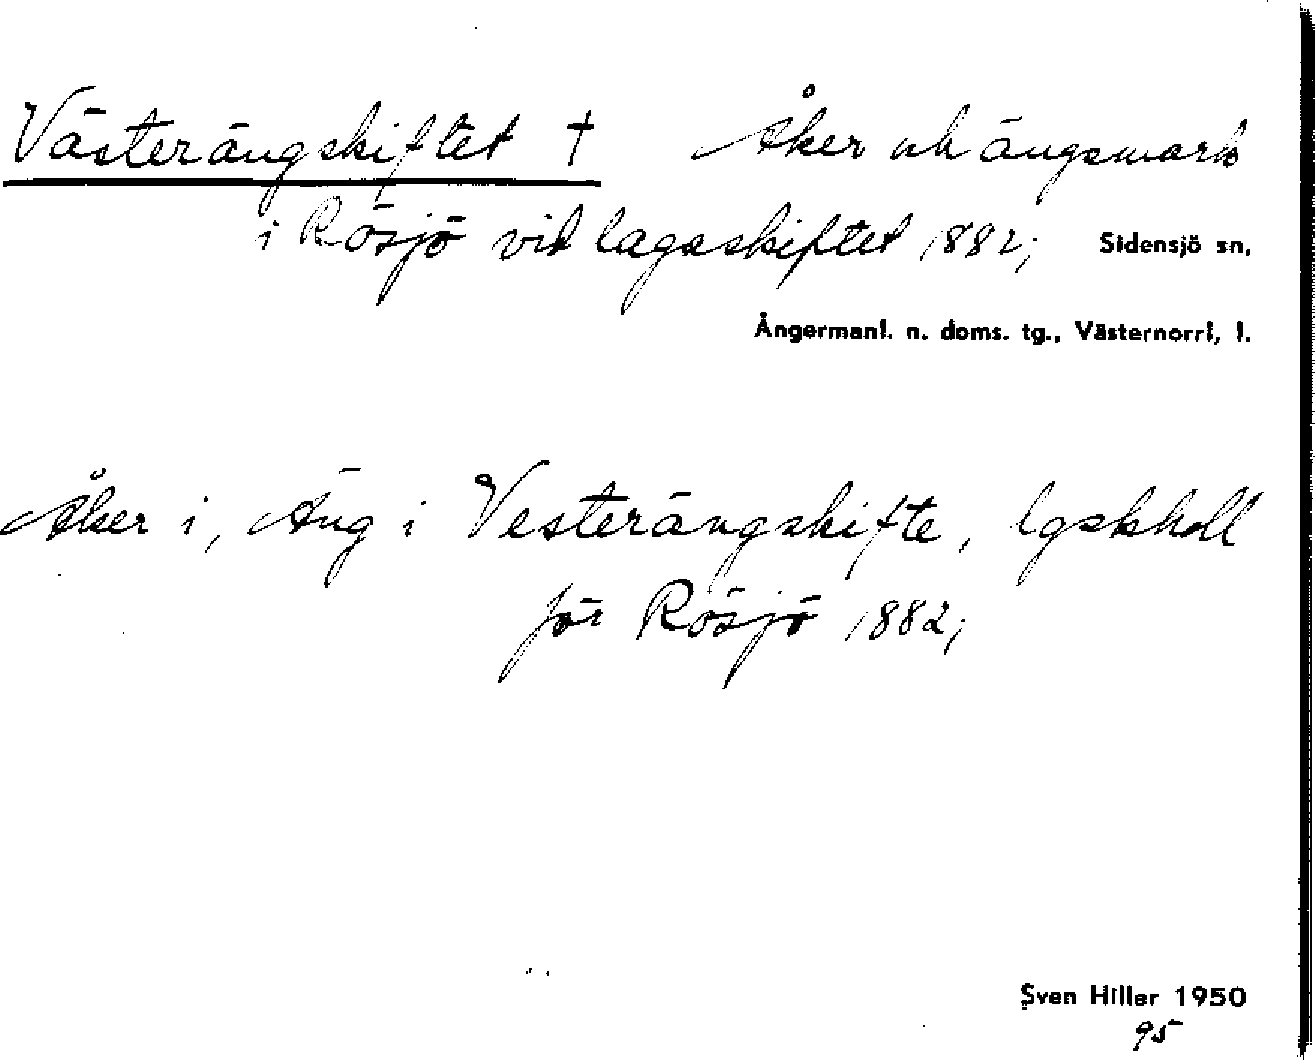 Västerängskiftet † Åker och ängsmark
i Rösjö vid lagaskiftet 1882; Sidensjö sn.
Ångermanl. n. doms. tg., Västernorrl, l.
Åker i, Äng i Vesterängskifte, lgskholl
för Rösjö 1882;
Sven Hiller 1950
95